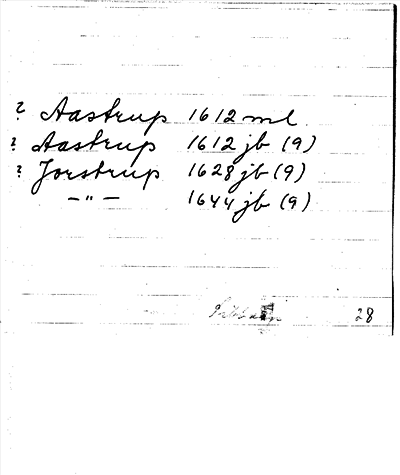 ? Aastrup 1612 ml.
? Aastrup 1612 jb (9)
? Jorstrup 1628 jb (9)
—"— 1644 jb (9)
28